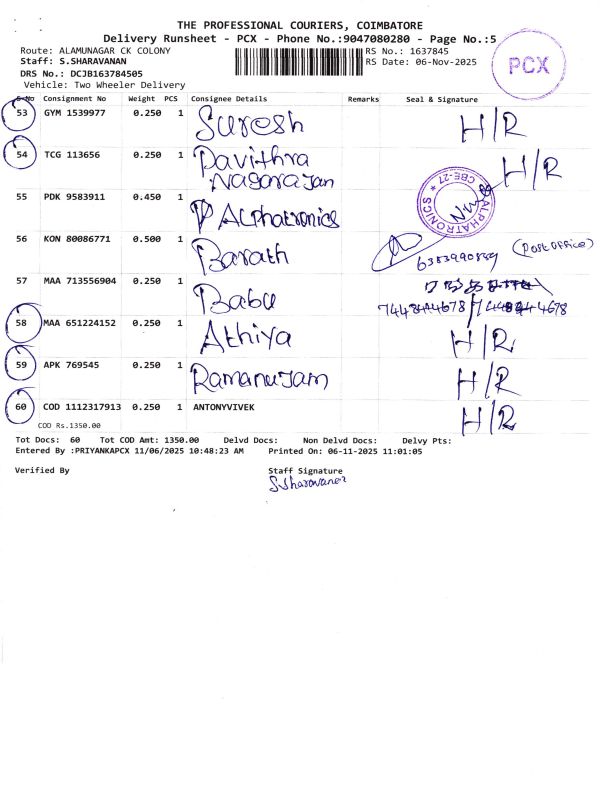 THE PROFESSIONAL COURIERS, COIMBATORE
Delivery Runsheet - PCX - Phone No.:9047080280 - Page No.:5
Route: ALAMUNAGAR CK COLONY
RS No.: 1637845
Staff: S.SHARAVANAN
RS Date: 06-Nov-2025
DRS No.: DCJB163784505
Vehicle: Two Wheeler Delivery
PCX
S.No Consignment No Weight PCS Consignee Details Remarks Seal & Signature
53 GYM 1539977 0.250 1 Suresh H/R
54 TCG 113656 0.250 1 Pavithra H/R
Nagarajan
55 PDK 9583911 0.450 1 Alphatronics
ALPHATRONICS * CBE-27 *
56 KON 80086771 0.500 1 Barath
(Post office)
57 MAA 713556904 0.250 1 Babu
58 MAA 651224152 0.250 1 Athiya H/R
59 APK 769545 0.250 1 Ramanujam H/R
60 COD 1112317913 0.250 1 ANTONYVIVEK H/R
COD Rs.1350.00
Tot Docs: 60 Tot COD Amt: 1350.00 Delvd Docs: Non Delvd Docs: Delvy Pts:
Entered By :PRIYANKAPCX 11/06/2025 10:48:23 AM Printed On: 06-11-2025 11:01:05
Verified By
Staff Signature